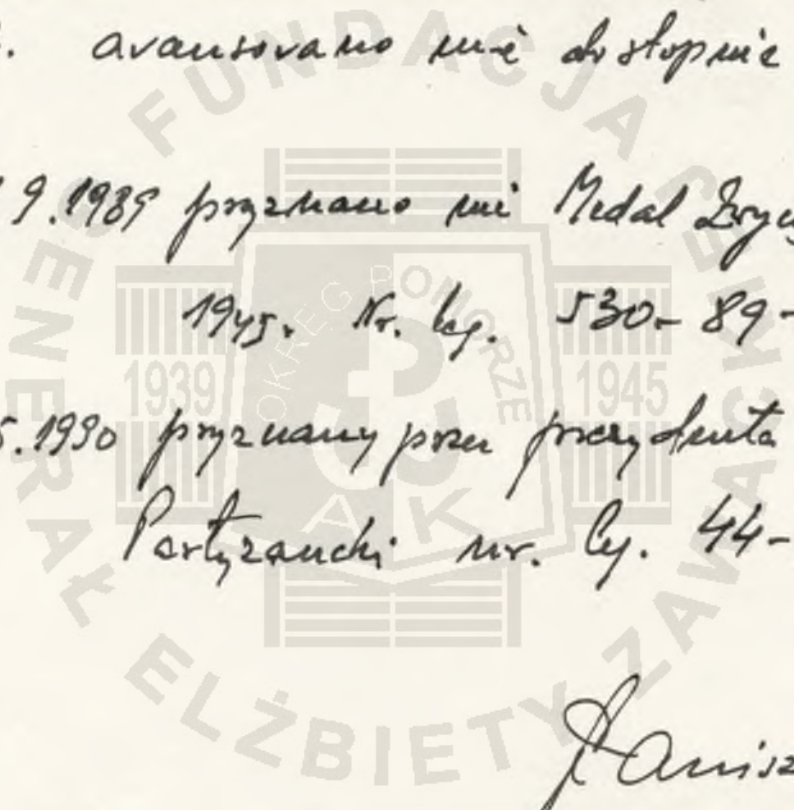 . avansovano mie do stopnie
9.1989 przyznano mi Medal Zwyc
1945. Nr. leg. 530-89-
5.1990 przyznany przez prezydenta
Partyzancki nr. leg. 44-
FUNDACJA GENERAŁ ELŻBIETY ZAWACKIEJ
OKRĘG POMORZE
1939
1945
AK